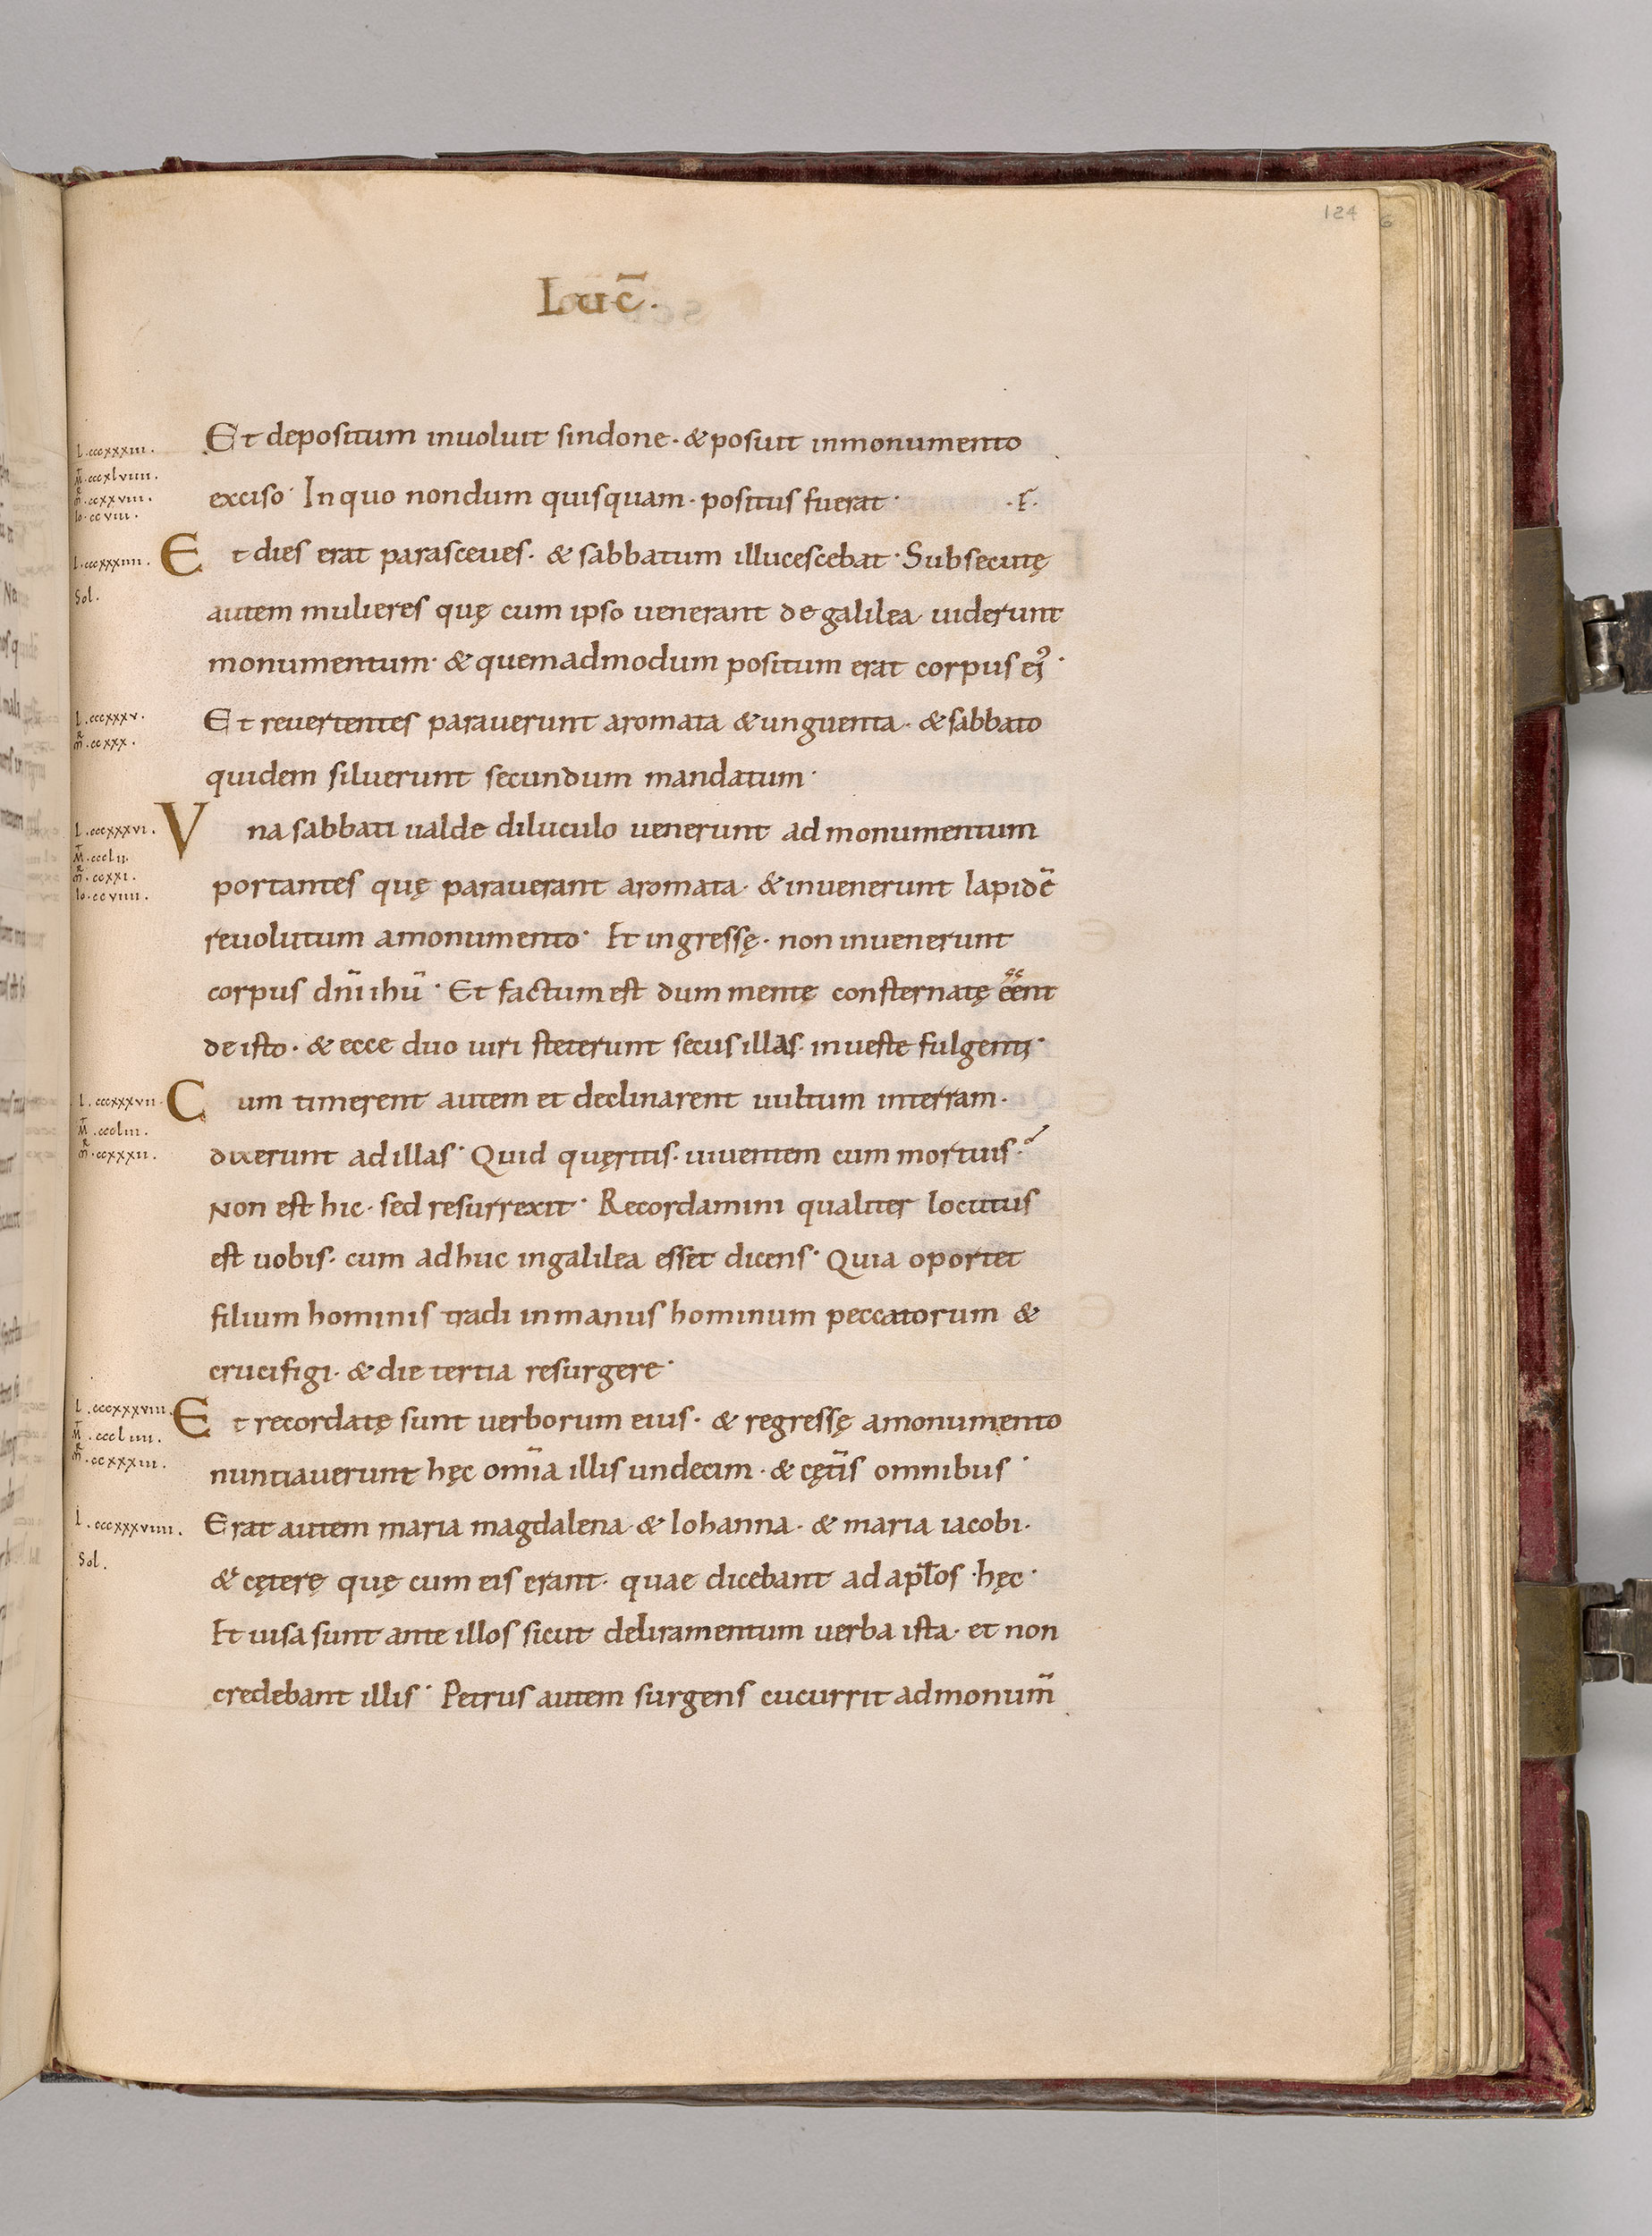 124
Luc̄.
L.cccxxxiii.
M̄.cccxlviiii.
m̄.ccxxviii.
Io.ccviii.
Et depositum inuoluit sindone· & posuit inmonumento
exciso· Inquo nondum quisquam· positus fuerat·
L.cccxxxiiii.
Sol.
Et dies erat parasceues· & sabbatum illucescebat· Subsecutę
autem mulieres quę cum ipso uenerant de galilea· uiderunt
monumentum· & quemadmodum positum erat corpus ei᾽·
L.cccxxxv.
m̄.ccxxx.
Et reuertentes parauerunt aromata & unguenta· & sabbato
quidem siluerunt secundum mandatum·
L.cccxxxvi.
M̄.ccclii.
m̄.ccxxi.
Io.ccviiii.
Vna sabbati ualde diluculo uenerunt ad monumentum
portantes quę parauerant aromata· & inuenerunt lapidē
reuolutum amonumento· Et ingressę· non inuenerunt
corpus dn̄i ihū· Et factum est dum mentę consternatę eēnt
de isto· & ecce duo uiri steterunt secus illas· inueste fulgenti·
L.cccxxxvii.
M̄.cccliii.
m̄.ccxxxii.
Cum timerent autem et declinarent uultum interram·
dixerunt ad illas· Quid quęritis· uiuentem cum mortuis·
Non est hic· sed resurrexit· Recordamini qualiter locutus
est uobis· cum adhuc ingalilea esset dicens· Quia oportet
filium hominis tradi inmanus hominum peccatorum &
crucifigi· & die tertia resurgere·
L.cccxxxviii.
M̄.cccliiii.
m̄.ccxxxiii.
Et recordatę sunt uerborum eius· & regressę amonumento
nuntiauerunt hęc om̄ia illis undecim· & cęt̄is omnibus·
L.cccxxxviiii.
Sol.
Erat autem maria magdalena· & Iohanna· & maria iacobi·
& cęterę quę cum eis erant· quae dicebant ad apl̄os· hęc·
Et uisa sunt ante illos sicut deliramentum uerba ista· et non
credebant illis· Petrus autem surgens cucurrit admonum̄